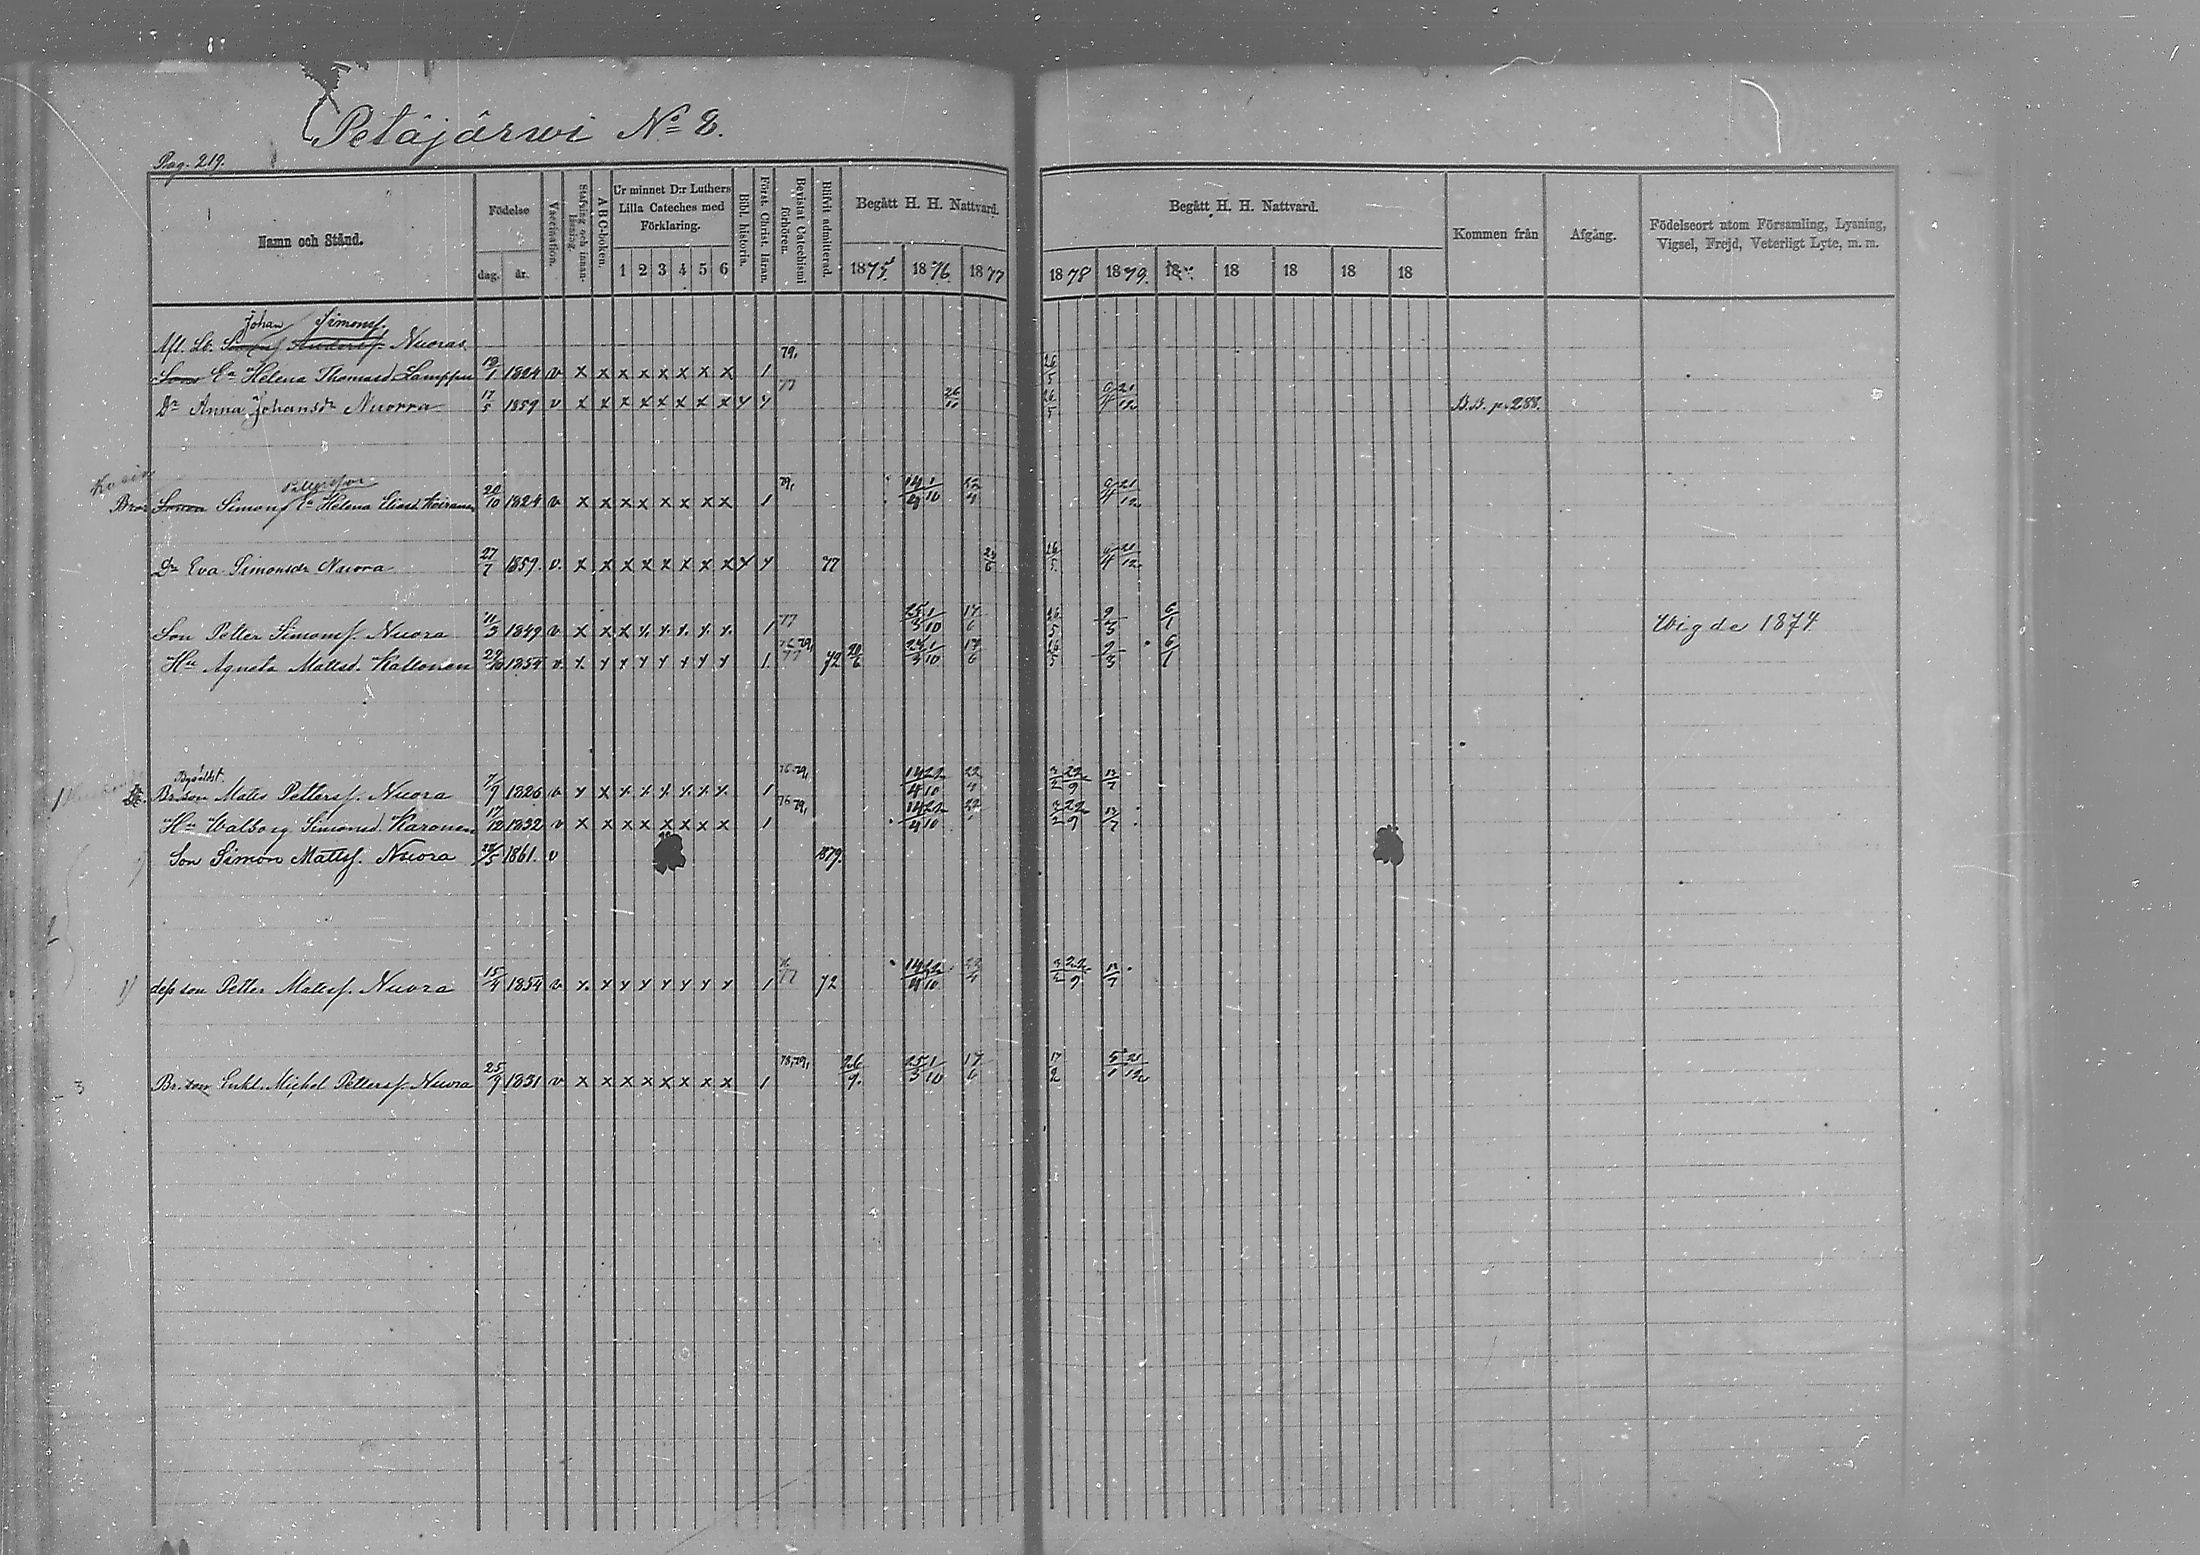 Petäjärwi No 8.
Pag. 219.
Namn och Stånd.
Födelse
dag. år.
Vaccination.
Stafning och innan-läsning.
A B C-boken.
Ur minnet D:r Luthers Lilla Cateches med Förklaring.
1 2 3 4 5 6
Bibl. historia.
Först. Christ. läran.
Bevistat Catechismi förhören.
Blifvit admitterad.
Begått H. H. Nattvard.
1875. 1876. 1877
Begått H. H. Nattvard.
1878 1879. 18 18 18 18 18
Kommen från
Afgång.
Födelseort utom Församling, Lysning, Vigsel, Frejd, Veterligt Lyte, m. m.
Johan Simonss.
Afl. Lb. Anderss. Nuoras
79,
Ea Helena Thomasd. Lamppu 18/1 1824 v x x x x x x x x 1 26/5
77
Dr Anna Johansdr Nuorra 17/5 1859 v x x x x x x x x y y 26/5 9/4 21/12 B.B. p. 288.
79,
Bror Simons Ea Helena Eliasd. 20/10 1824 v x x x x x x x x 1 9/4 21/12
Dr Eva Simonsdr Nuora 27/7 1859. v. x x x x x x x x y y 77 26/5 9/4 21/12
77
Son Petter Simonss. Nuora 11/3 1849 v x x x x x x x x 1 25/3 1/10 17/6 26/5 9/3 6/1 Wigde 1874
76 79, 77
Hu Agneta Mattsd. Kattonen 29/10 1854 v x y y y y y y y 1 72 20/6 1/10 17/6 26/5 9/3 6/1
76 79,
Br.son Mats Petterss. Nuora 7/9 1826 v 1 14/4 22/10 3/2 22/9 13/7
76 79,
Hu Walborg Simonsd. Karonen 17/12 1832 v x x x x x x x x 1 14/4 22/10 3/2 22/9 13/7
Son Simon Matss. Nuora 1861. v 1879.
1) dess son Petter Matss. Nuora 15/4 1854 v 1 77 72 14/4 22/10 3/2 22/9 13/7
78, 79,
3 Br. son Enkl. Michel Petterss. Nuora 25/9 1831 v x x x x x x x x 1 26/9. 25/3 1/10 17/6 17/2 5/1 21/12